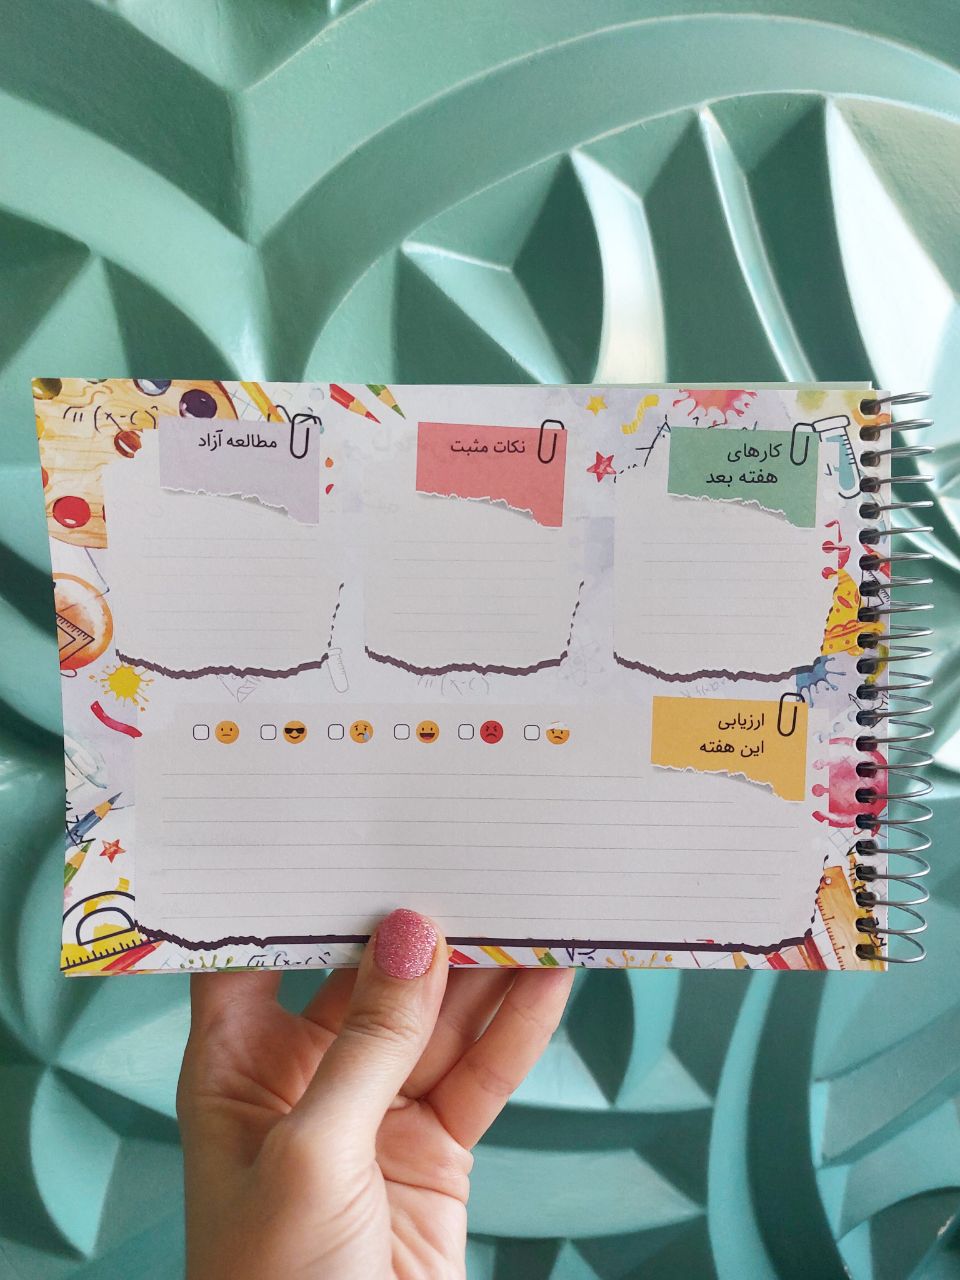 کارهای
هفته بعد
نکات مثبت
مطالعه آزاد
ارزیابی
این هفته